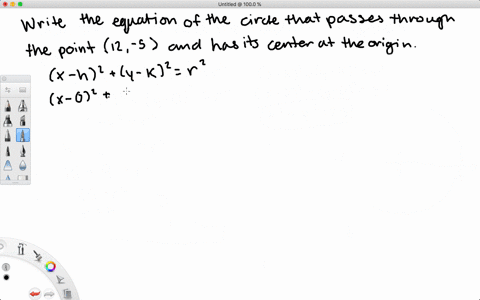 Untitled @ 100.0 %
Write the equation of the circle that passes through
the point (12,-5) and has its center at the origin.
(x-h)² + (y-k)² = r²
(x-0)² +